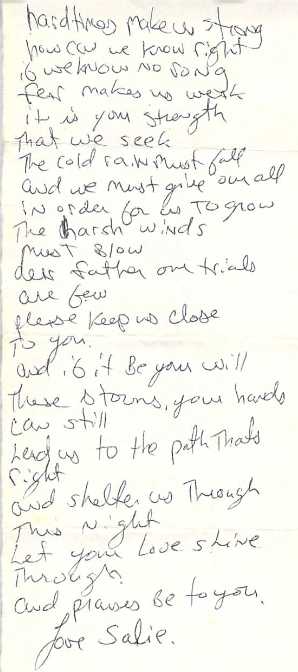 hardtimes make us strong
how can we know right
if we know no song
fear makes us weak
it is your strength
that we seek
The cold rain must fall
and we must give our all
in order for us To grow
The harsh winds
must Blow
dear father our trials
are few
please keep us close
To you.
and if it Be your will
These storms, your hands
can still
Lead us to the path Thats
right
and shelter us Through
This night
Let your Love shine
Through.
and praises Be to you.
Love Salie.